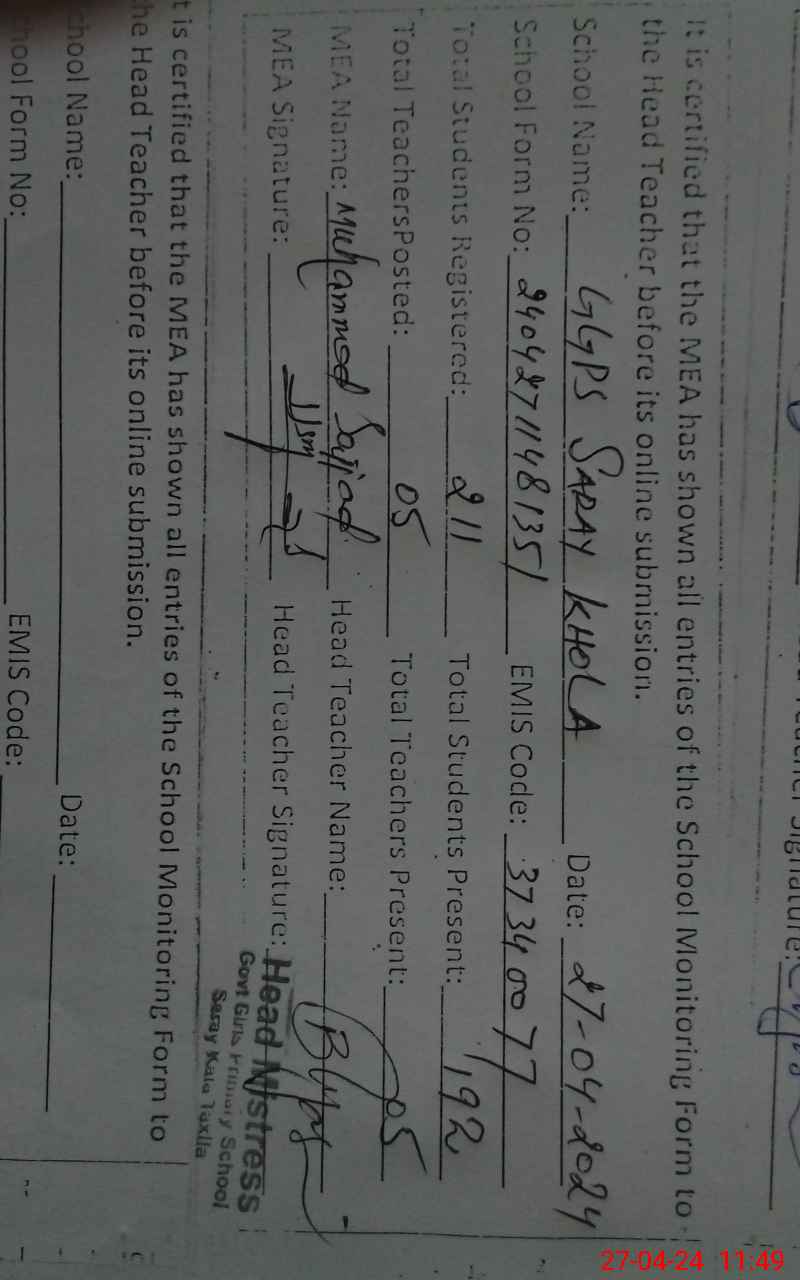 Teacher Signature:
It is certified that the MEA has shown all entries of the School Monitoring Form to
the Head Teacher before its online submission.
School Name: GGPS SARAY KHOLA Date: 27-04-2024
School Form No: 24042711481351 EMIS Code: 37340077
Total Students Registered: 211 Total Students Present: 192
Total TeachersPosted: 05 Total Teachers Present: 05
MEA Name: Muhammad Sajjad Head Teacher Name:
MEA Signature: Head Teacher Signature:
Head Mistress
Govt Girls Primary School
Saray Kala Taxila
t is certified that the MEA has shown all entries of the School Monitoring Form to
he Head Teacher before its online submission.
hool Name: Date:
hool Form No: EMIS Code:
27-04-24 11:49